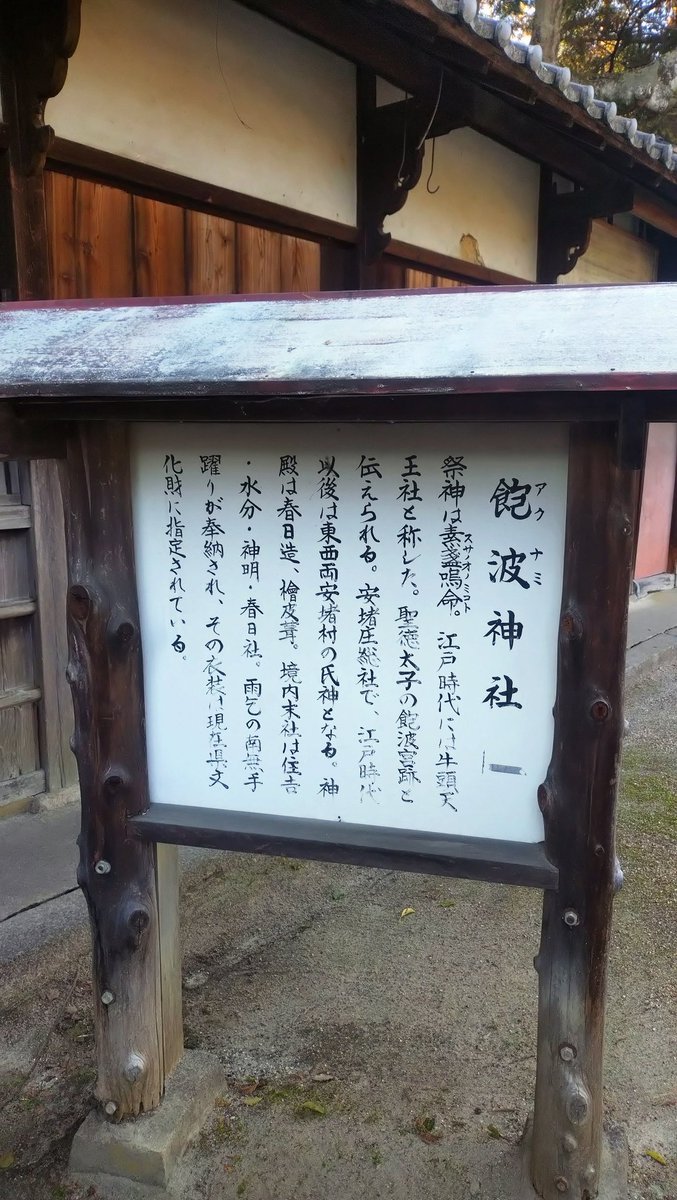 飽波神社
アクナミ
祭神は素盞嗚命。江戸時代には牛頭天
スサノオノミコト
王社と称した。聖徳太子の飽波宮跡と
伝えられる。安堵庄総社で、江戸時代
以後は東西両安堵村の氏神となる。神
殿は春日造、檜皮葺。境内末社は住吉
・水分・神明・春日社。雨乞の南無手
躍りが奉納され、その衣装は現在県文
化財に指定されている。